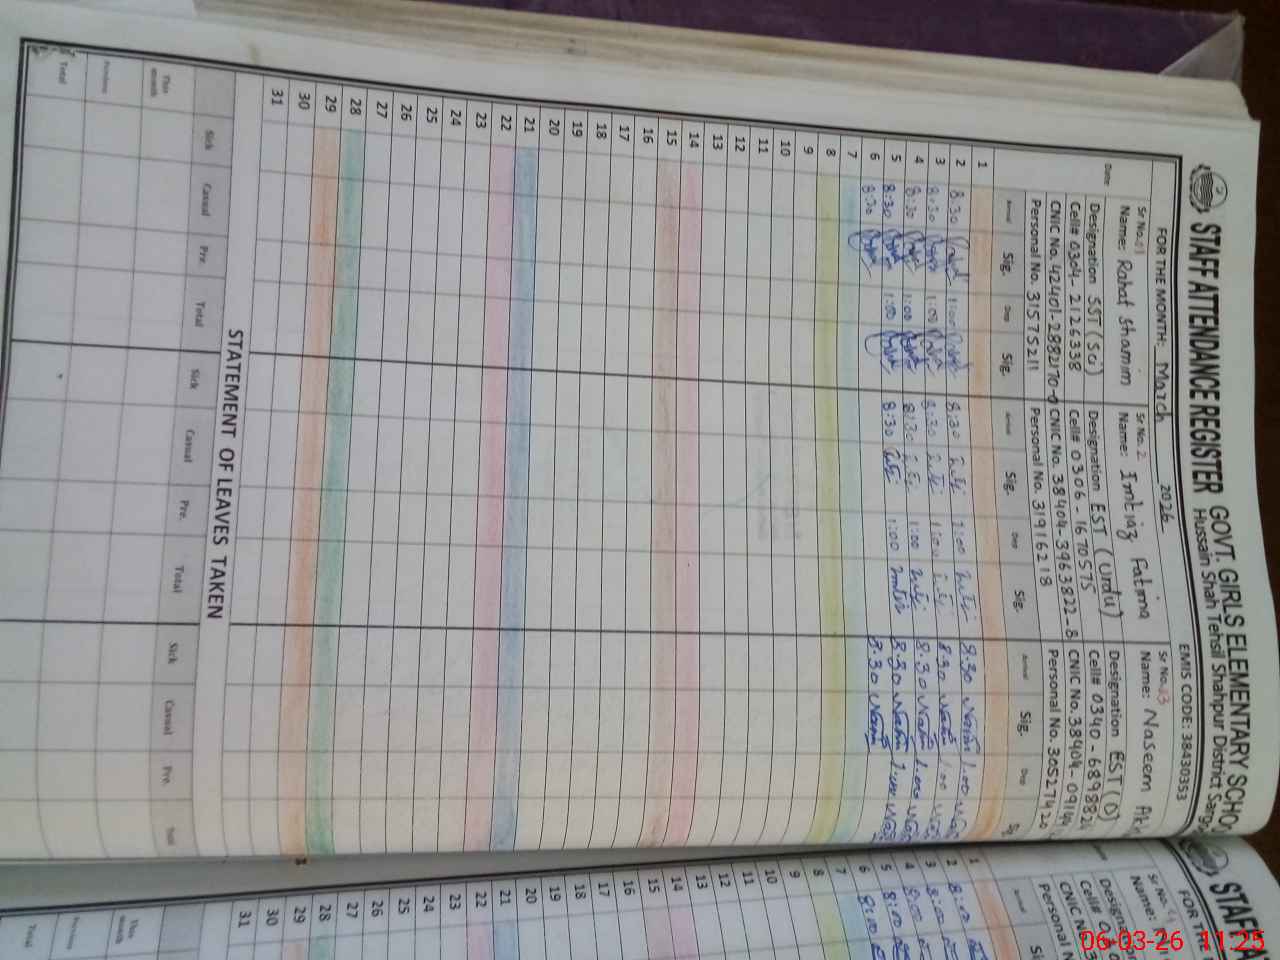 STAFF ATTENDANCE REGISTER GOVT. GIRLS ELEMENTARY SCHO
Hussain Shah Tehsil Shahpur District Sargo
FOR THE MONTH: March 2026 EMIS CODE: 38430353
Sr No. 01 Sr No. 2 Sr No. 03
Name: Rahat Shamim Name: Imtiaz Fatima Name: Naseem
Designation SST (Sci) Designation EST (Urdu) Designation EST (O)
Cell# 0304-2126338 Cell# 0306-1670575 Cell# 0340-689882
CNIC No. 42401-2882170-0 CNIC No. 38404-3963822-8 CNIC No. 38404-09144
Personal No. 31575211 Personal No. 31916218 Personal No. 30527420
Date Arrival Sig. Dep Sig. Arrival Sig. Dep Sig. Arrival Sig. Dep
1
2 8:30 1:00 8:30 1:00 8.30 1.00
3 8:30 1:00 8:30 1:00 8.30 1.00
4 8:30 1:00 8:30 1:00 8.30
5 8:30 1:00 8:30 1:00 8.30
6 8:30 8.30
7
8
9
10
11
12
13
14
15
16
17
18
19
20
21
22
23
24
25
26
27
28
29
30
31
STATEMENT OF LEAVES TAKEN
Sick Casual Pre. Total Sick Casual Pre. Total Sick Casual Pre. Total
This month
Previous
Total
STAFF
FOR THE
Sr No.
Name:
Design
Cell#
CNIC N
Personal N
Arrival
1
2 8:00
3 8:00
4 8:00
5 8:00
6 8:00
7
8
9
10
11
12
13
14
15
16
17
18
19
20
21
22
23
24
25
26
27
28
29
30
31
This month
Previous
Total
06-03-26 11:25